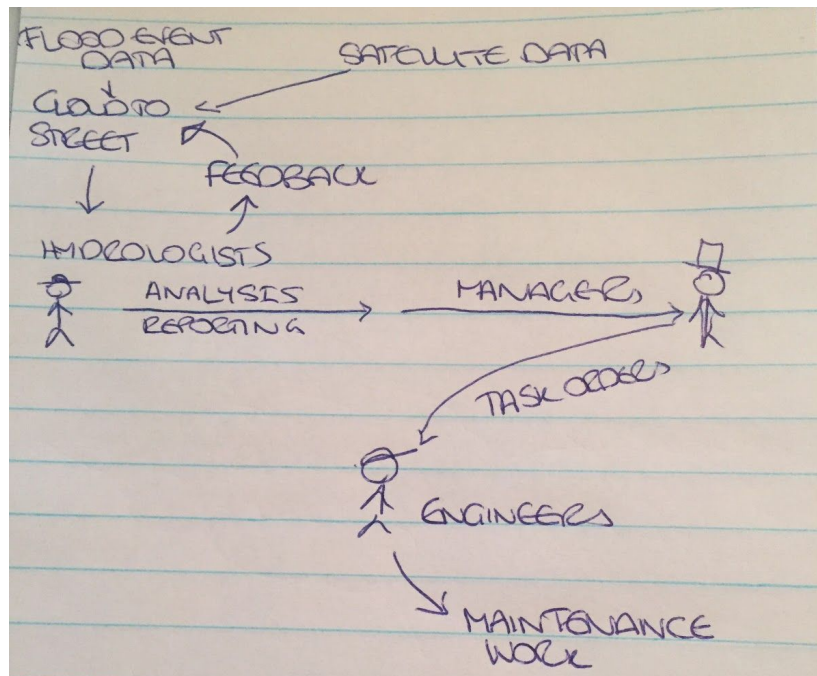 FLOOD EVENT
DATA
SATELLITE DATA
CLOUD TO
STREET
FEEDBACK
HYDROLOGISTS
ANALYSIS
REPORTING
MANAGERS
TASK ORDERS
ENGINEERS
MAINTENANCE
WORK